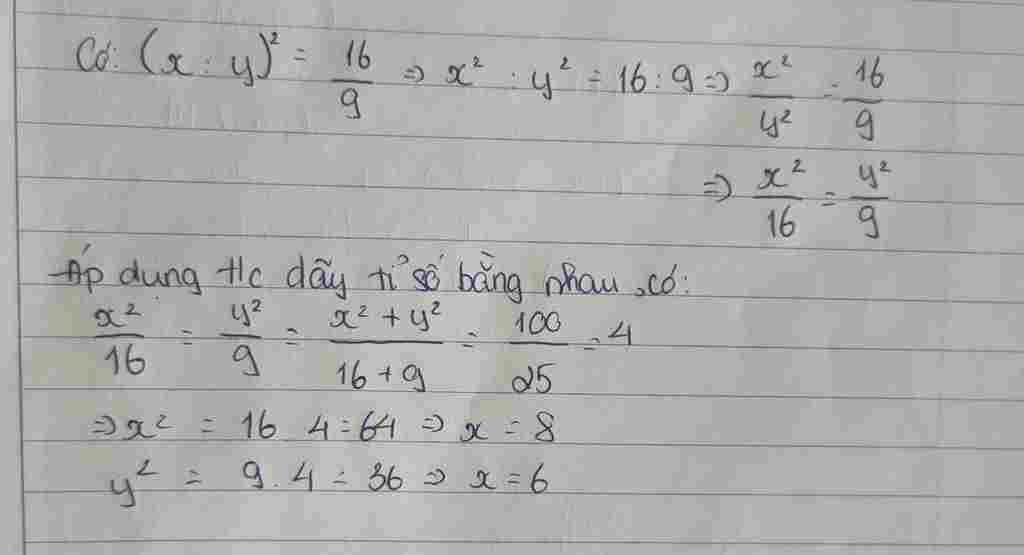 Có: (x : y)² = 16/9 => x² : y² = 16 : 9 => x²/y² = 16/9
=> x²/16 = y²/9
Áp dung t/c dãy tỉ số bằng nhau, có:
x²/16 = y²/9 = x² + y²/16 + 9 = 100/25 = 4
=> x² = 16 4 = 64 => x = 8
y² = 9 . 4 = 36 => x = 6